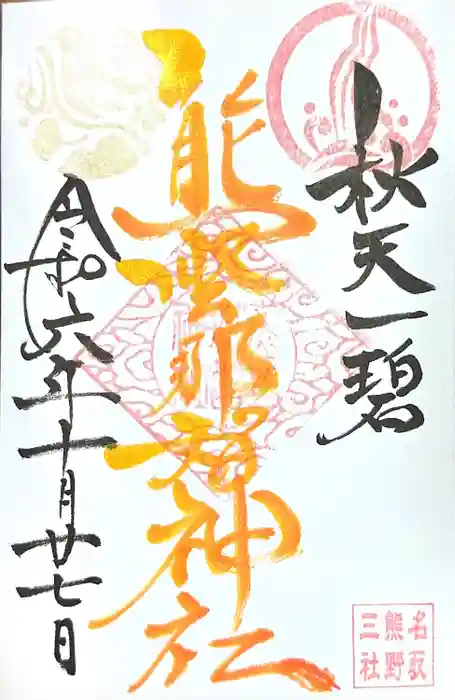 秋天一碧
熊野那智神社
令和六年十月廿七日
名取
熊野
三社